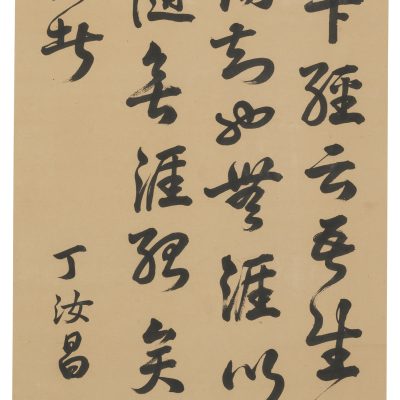 經云吾生
知也無涯以
隨無涯殆矣
丁汝昌